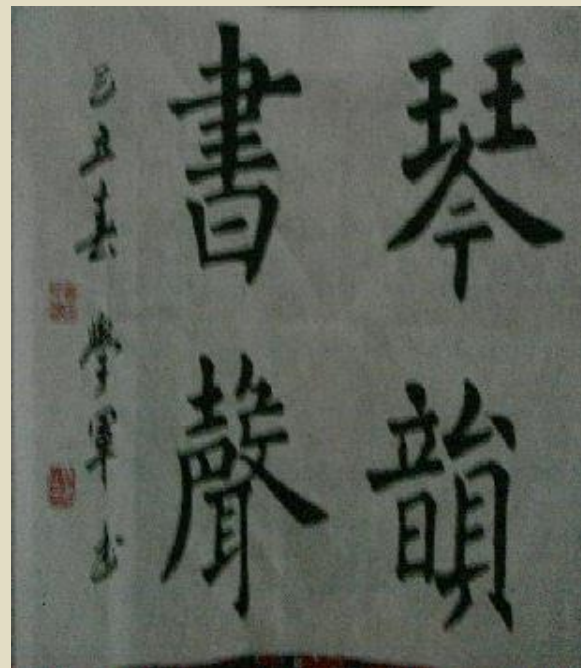 琴韻
書聲
己丑春 學軍書